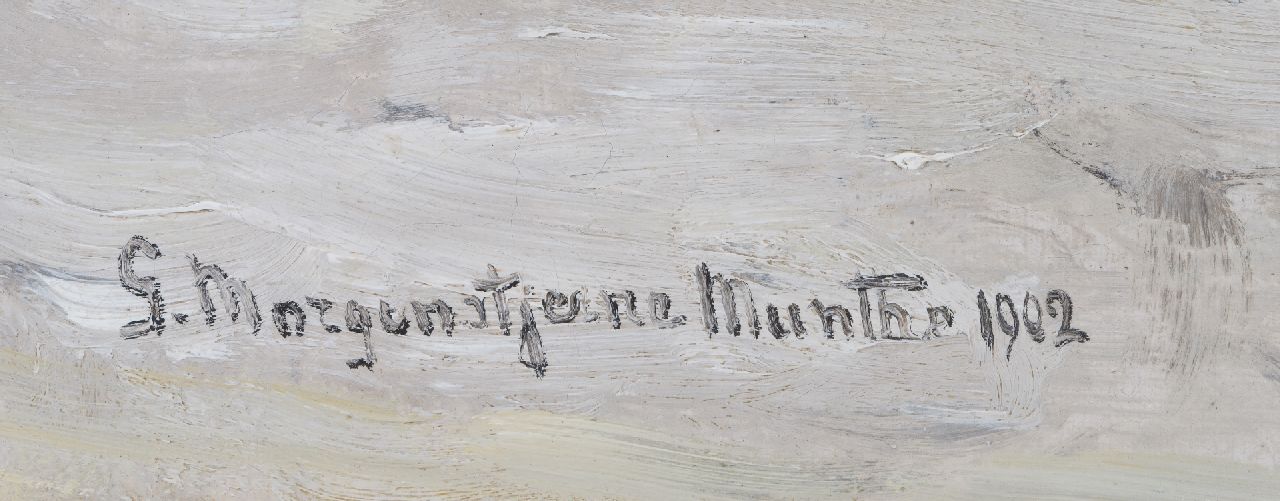 G. Morgenstjerne Munthe 1902